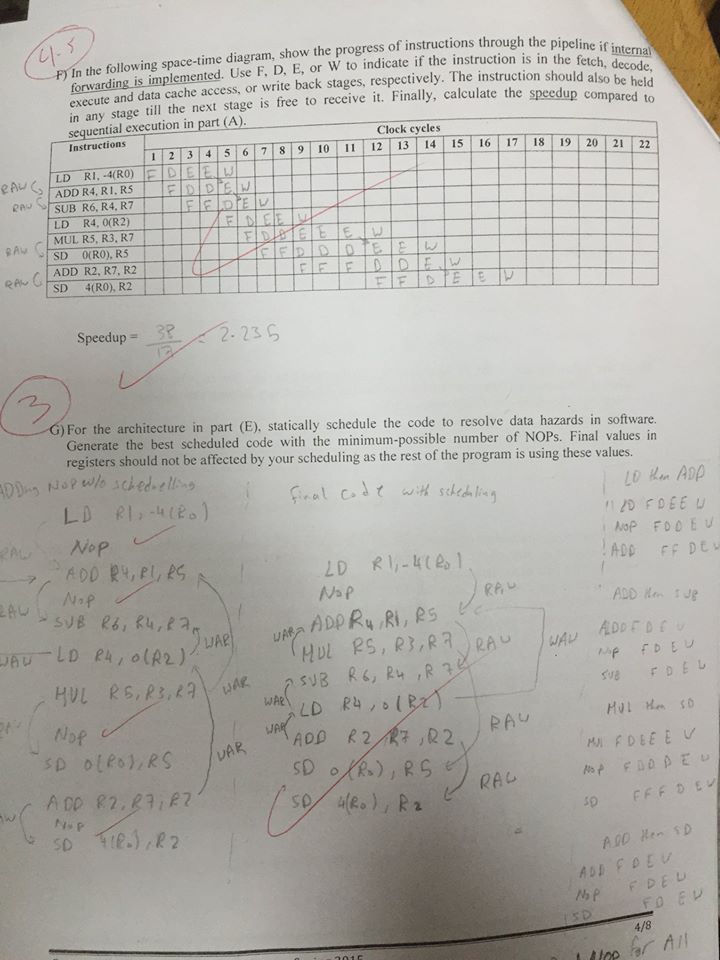 4.5
F) In the following space-time diagram, show the progress of instructions through the pipeline if internal
forwarding is implemented. Use F, D, E, or W to indicate if the instruction is in the fetch, decode,
execute and data cache access, or write back stages, respectively. The instruction should also be held
in any stage till the next stage is free to receive it. Finally, calculate the speedup compared to
sequential execution in part (A).
Instructions Clock cycles
1 2 3 4 5 6 7 8 9 10 11 12 13 14 15 16 17 18 19 20 21 22
LD R1, -4(R0) F D E E W
RAW ADD R4, R1, R5 F D D E W
RAW SUB R6, R4, R7 F F D E W
LD R4, 0(R2) F D E E W
MUL R5, R3, R7 F D D E E E W
RAW SD 0(R0), R5 F F D D D E E W
ADD R2, R7, R2 F F F D D E W
RAW SD 4(R0), R2 F F D E E W
Speedup = 38/17 = 2.235
3
G) For the architecture in part (E), statically schedule the code to resolve data hazards in software.
Generate the best scheduled code with the minimum-possible number of NOPs. Final values in
registers should not be affected by your scheduling as the rest of the program is using these values.
ADDing NOP w/o scheduelling
LD R1, -4(R0)
NOP
RAW
ADD R4, R1, R5
NOP
RAW
SUB R6, R4, R7
WAR
WAW LD R4, 0(R2)
MUL R5, R3, R7
WAR
NOP
SD 0(R0), R5
WAR
ADD R2, R7, R2
NOP
SD 4(R0), R2
final code with scheduling
LD R1, -4(R0)
NOP
RAW
ADD R4, R1, R5
WAR
MUL R5, R3, R7
RAW
WAW
SUB R6, R4, R7
WAR
LD R4, 0(R2)
WAR
ADD R2, R7, R2
RAW
SD 0(R0), R5
RAW
SD 4(R0), R2
LD then ADD
LD F D E E W
NOP F D D E W
ADD F F D E W
ADD then SUB
ADD F D E W
NOP F D E W
SUB F D E W
MUL then SD
MUL F D E E E W
NOP F D D D E W
SD F F F D E W
ADD then SD
ADD F D E W
NOP F D E W
SD F D E W
4/8
for All